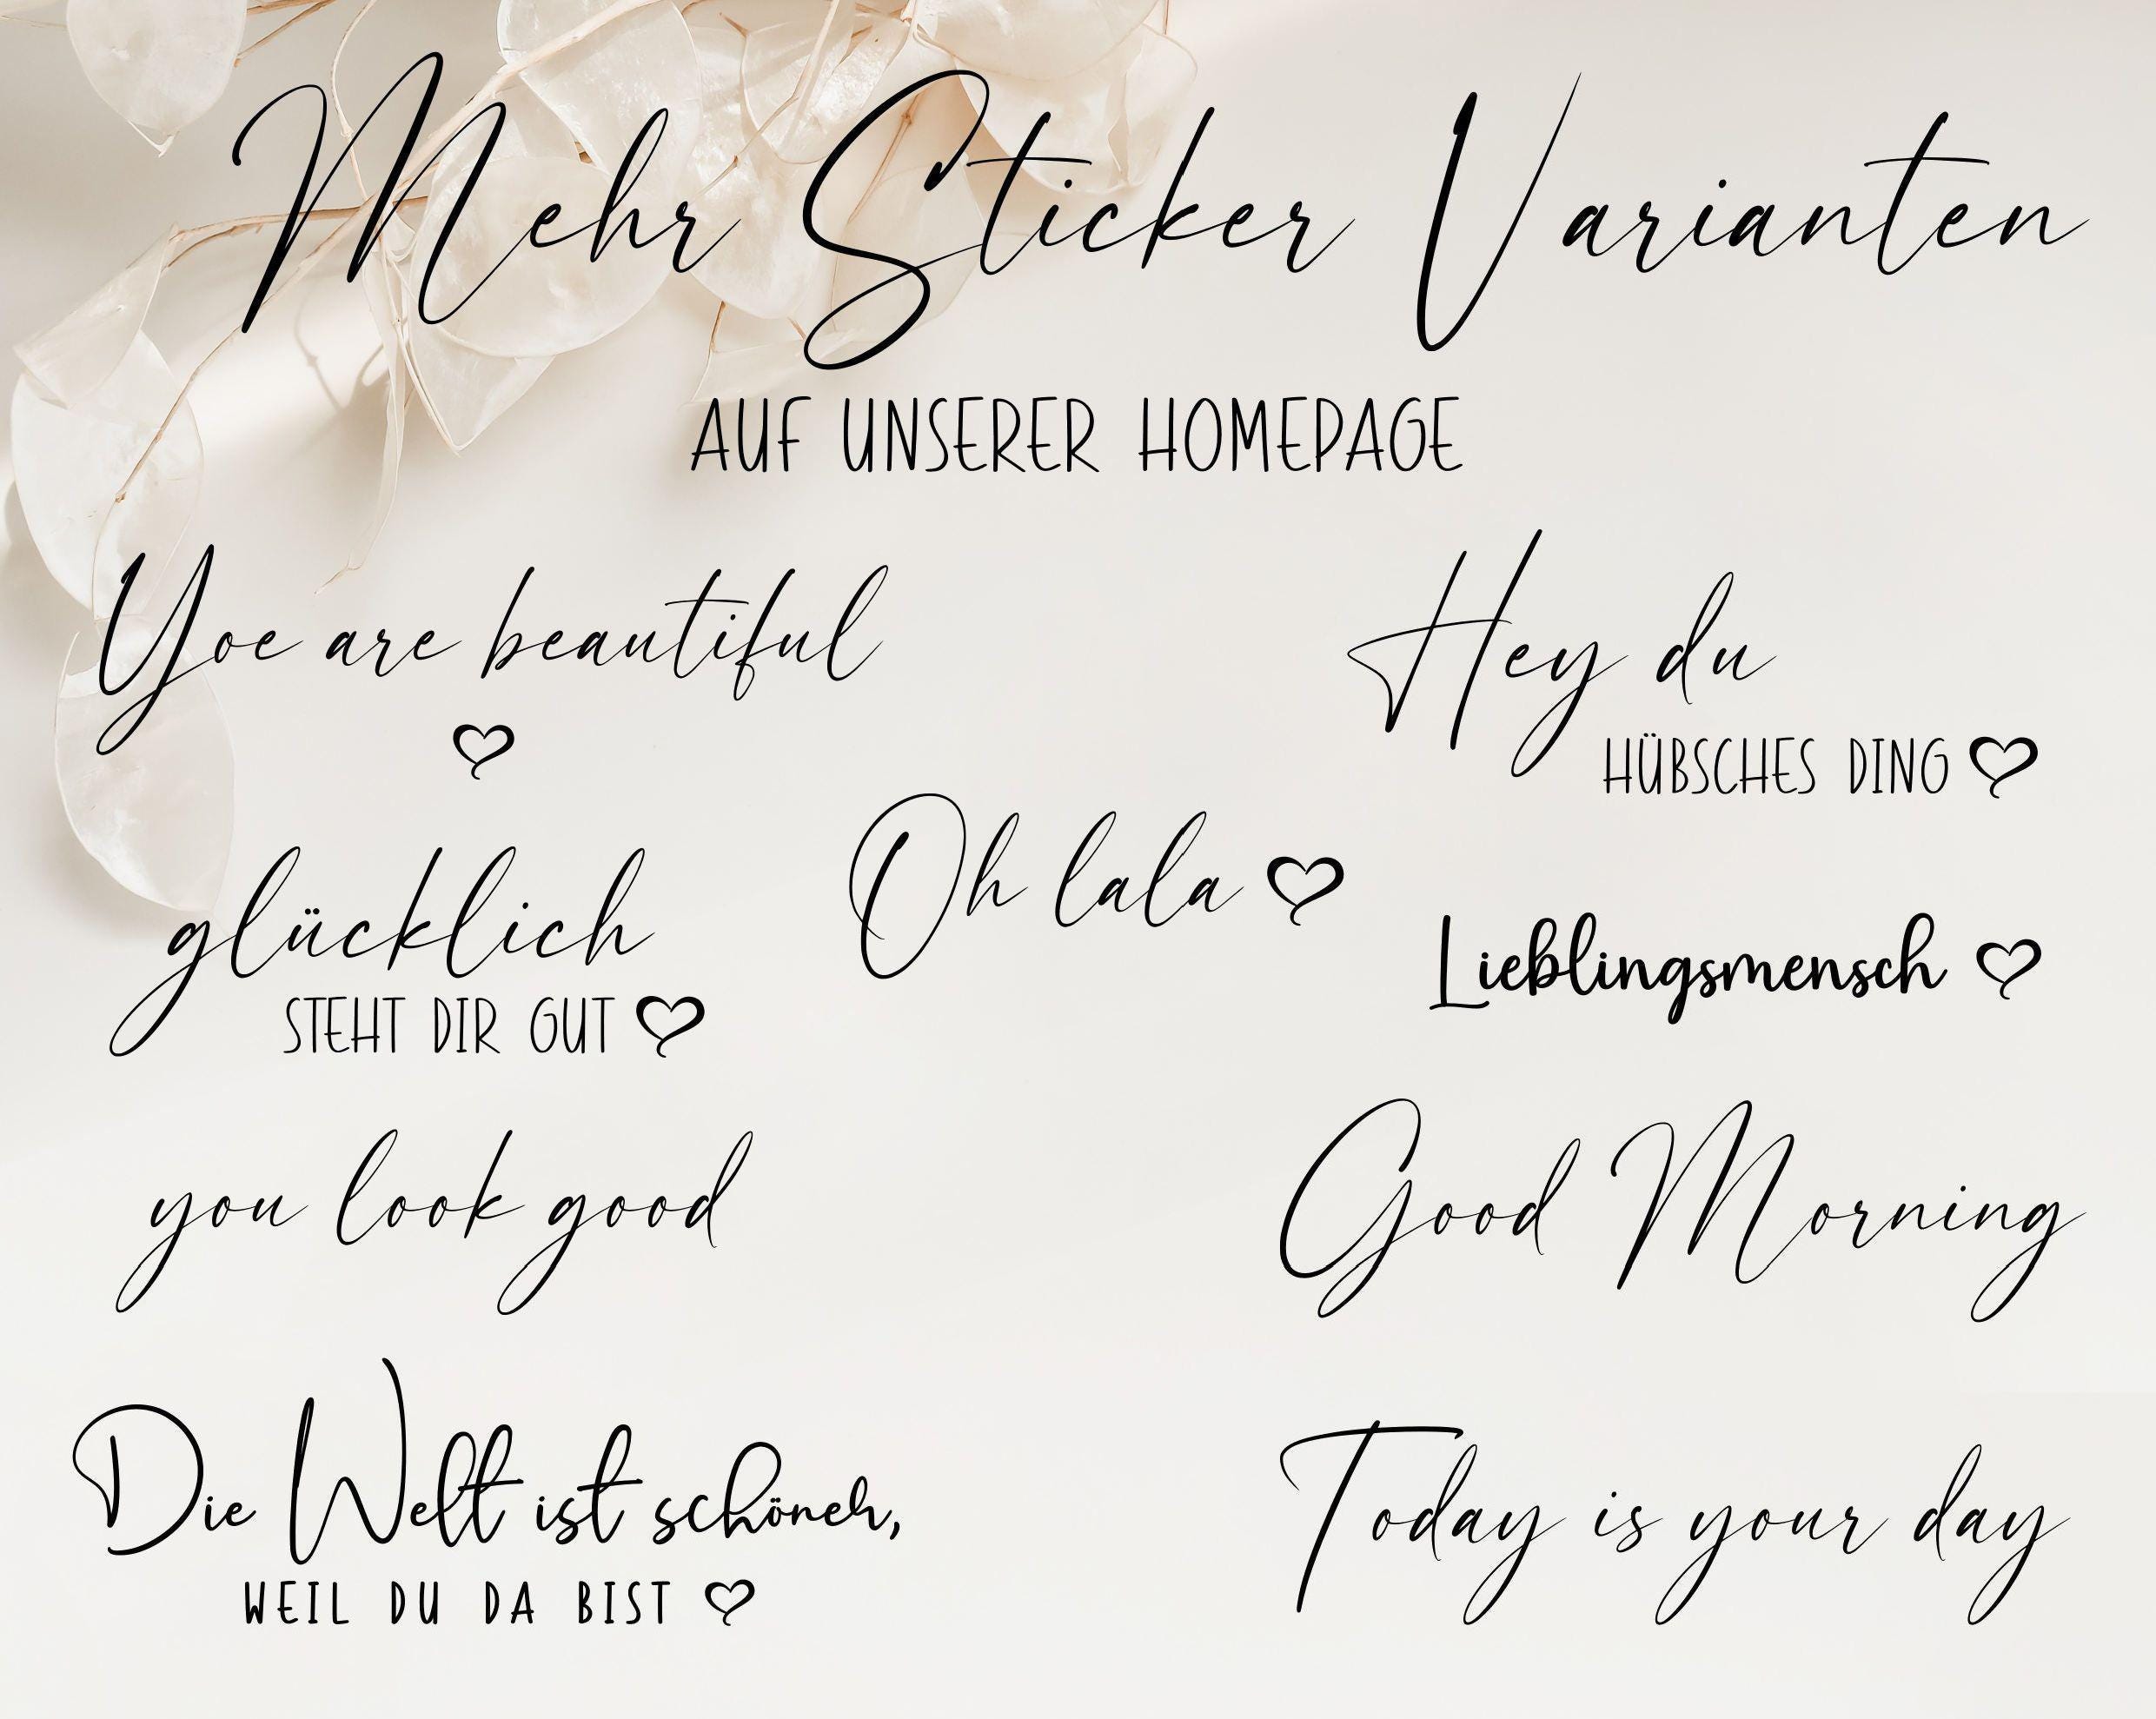 Mehr Sticker Varianten
AUF UNSERER HOMEPAGE
Yoe are beautiful
Hey du
HÜBSCHES DING
Oh lala
glücklich
STEHT DIR GUT
Lieblingsmensch
you look good
Good Morning
Die Welt ist schöner,
WEIL DU DA BIST
Today is your day